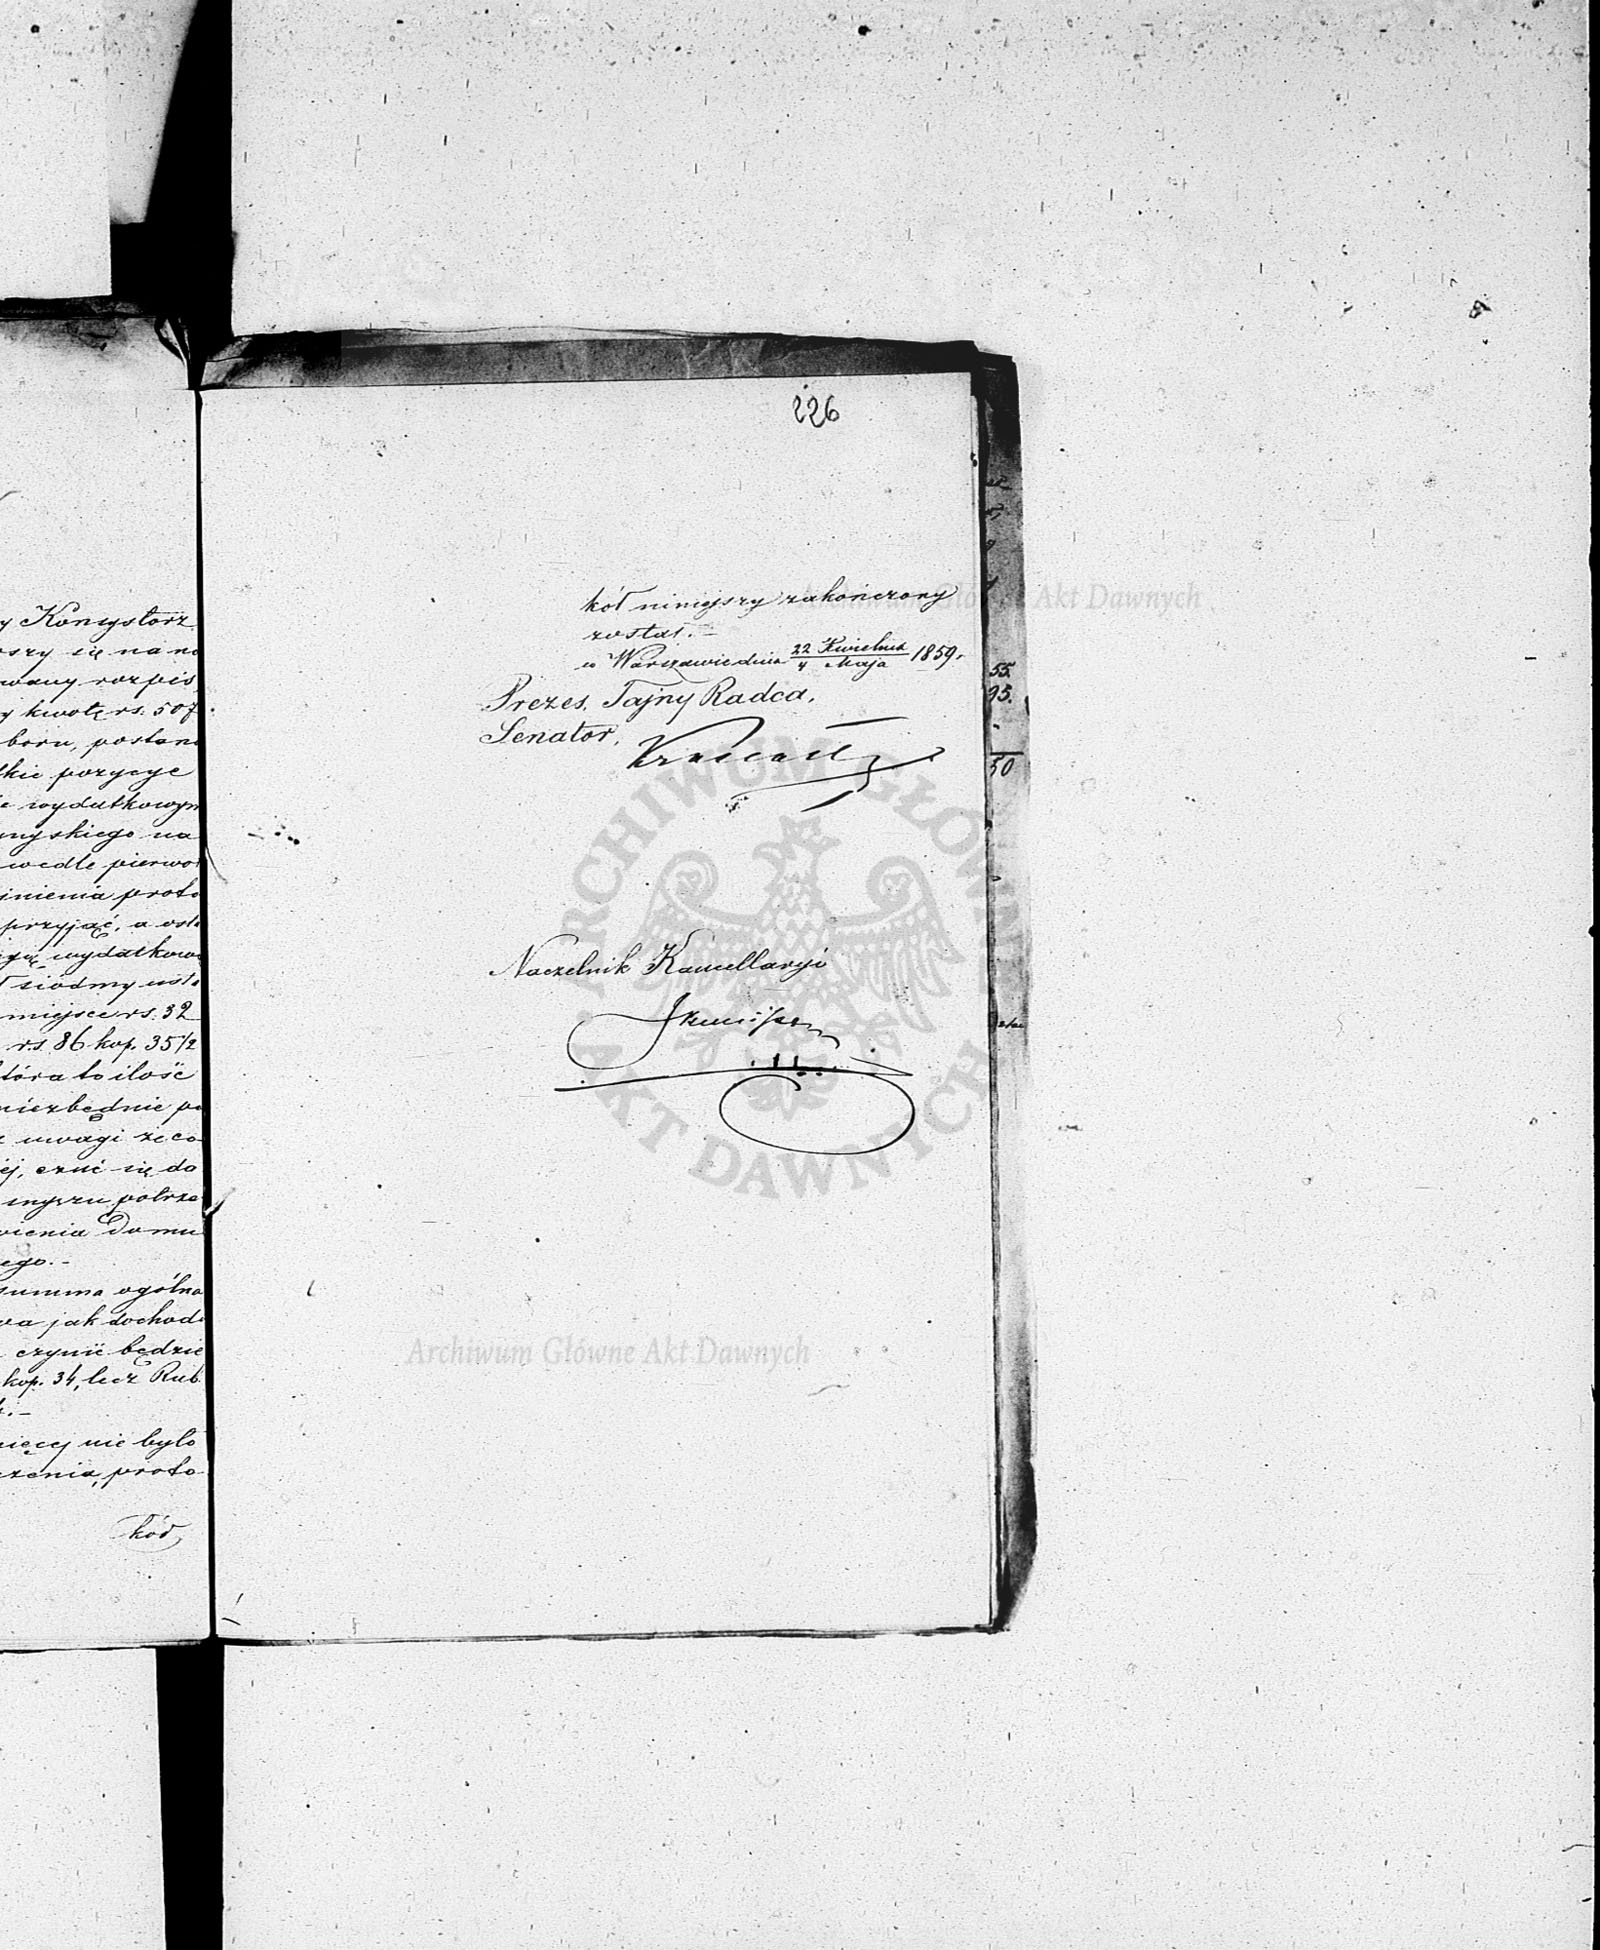 y Konsystorz
oszy się na no
wany rozpis
y kwotę rs. 507
boru, postano
kie pozycye
e wydatkowym
myskiego na
wedle pierwo
jnienia proto
przyjąć, a osta
wydatkowa
siódmy usta
miejsce rs. 32
rs. 86 kop. 35 1/2
tóra to ilość
niezbędnie po
uwagi że co
ej, czuć się da
potrze
wienia Domu
ego.-
summa ogólna
wa jak dochod
czynić będzie
kop. 34, lecz Rub.
ięcej nie było
zenia, proto-
kół
226
kół niniejszy zakończony
został.-
w Warszawie dnia 22 Kwietnia / 4 Maja 1859.
Prezes, Tajny Radca,
Senator,
Naczelnik Kancellaryi
55.
95.
50
Archiwum Główne Akt Dawnych
ARCHIWUM GŁÓWNE AKT DAWNYCH
Archiwum Główne Akt Dawnych